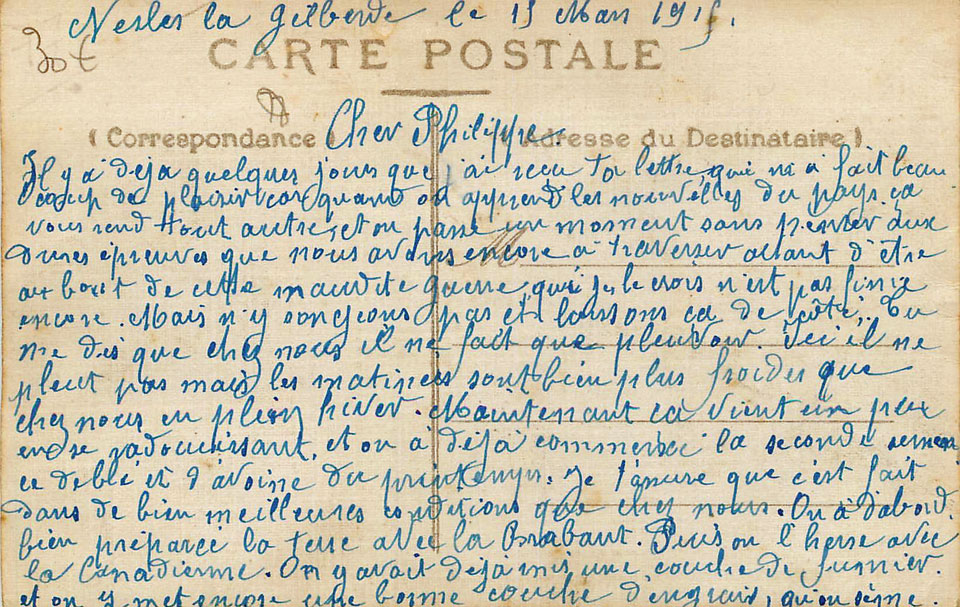 Nesles la Gilberde le 15 Mars 1915.
30 t
CARTE POSTALE
( Correspondance )
Cher Philippe.
Adresse du Destinataire )
Il y a deja quelques jours que j'ai recu ta lettre qui m'a fait beau
coup de plaisir car quand on apprend les nouvelles du pays ça
vous rend tout autre, et on passe un moment sans penser aux
dures épreuves que nous avons encore à traverser avant d'être
au bout de cette maudite guerre qui je le crois n'est pas finie
encore. Mais n'y songeons pas et laissons ça de côté. Tu
me dis que chez nous il ne fait que pleuvoir. Ici il ne
pleut pas mais les matinées sont bien plus froides que
chez nous en plein hiver. Maintenant ca vient un peu
en se radoucissant, et on à déjà commencé la seconde semen
ce de blé et d'avoine du printemps. Je t'assure que c'est fait
dans de bien meilleures conditions que chez nous. On à d'abord
bien préparée la terre avec la Brabant. Puis on l'herse avec
la Canadienne. On y avait déjà mis une couche de fumier.
et on y met encore une bonne couche d'engrais, qu'on sème.